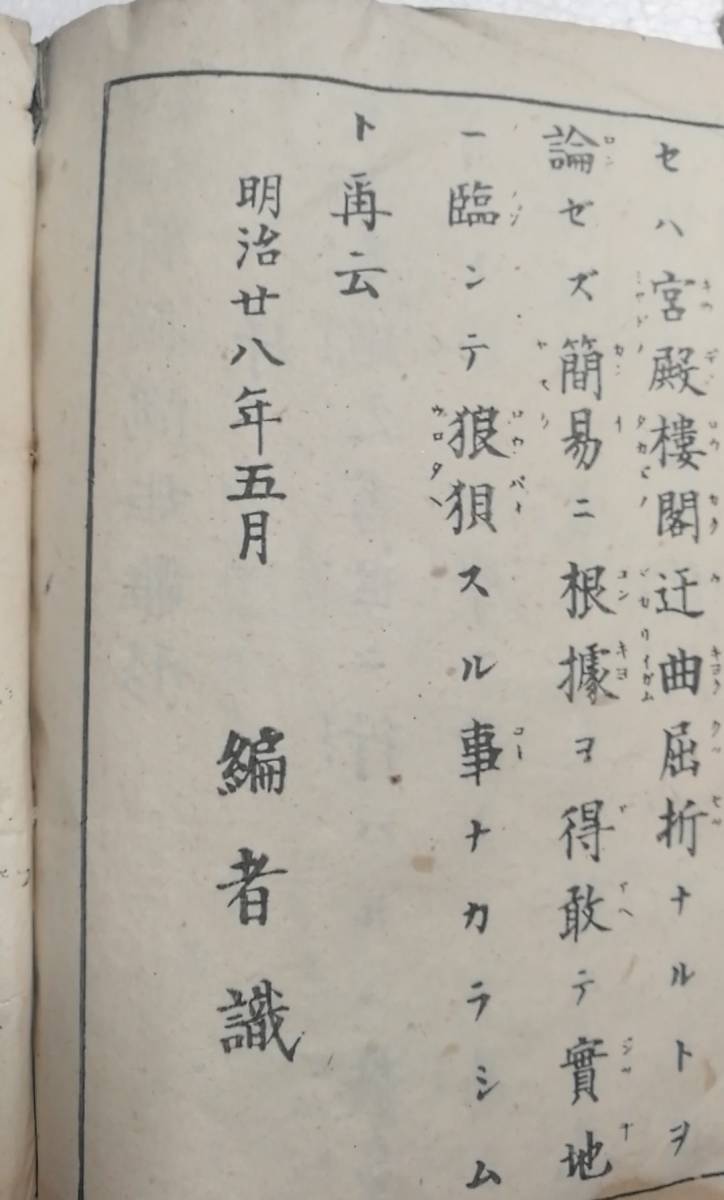 セハ宮殿樓閣迂曲屈折ナルトヲ
論ゼズ簡易ニ根據ヲ得敢テ實地
ー臨ンテ狼狽スル事ナカラシム
ト再云
明治廿八年五月
編者識